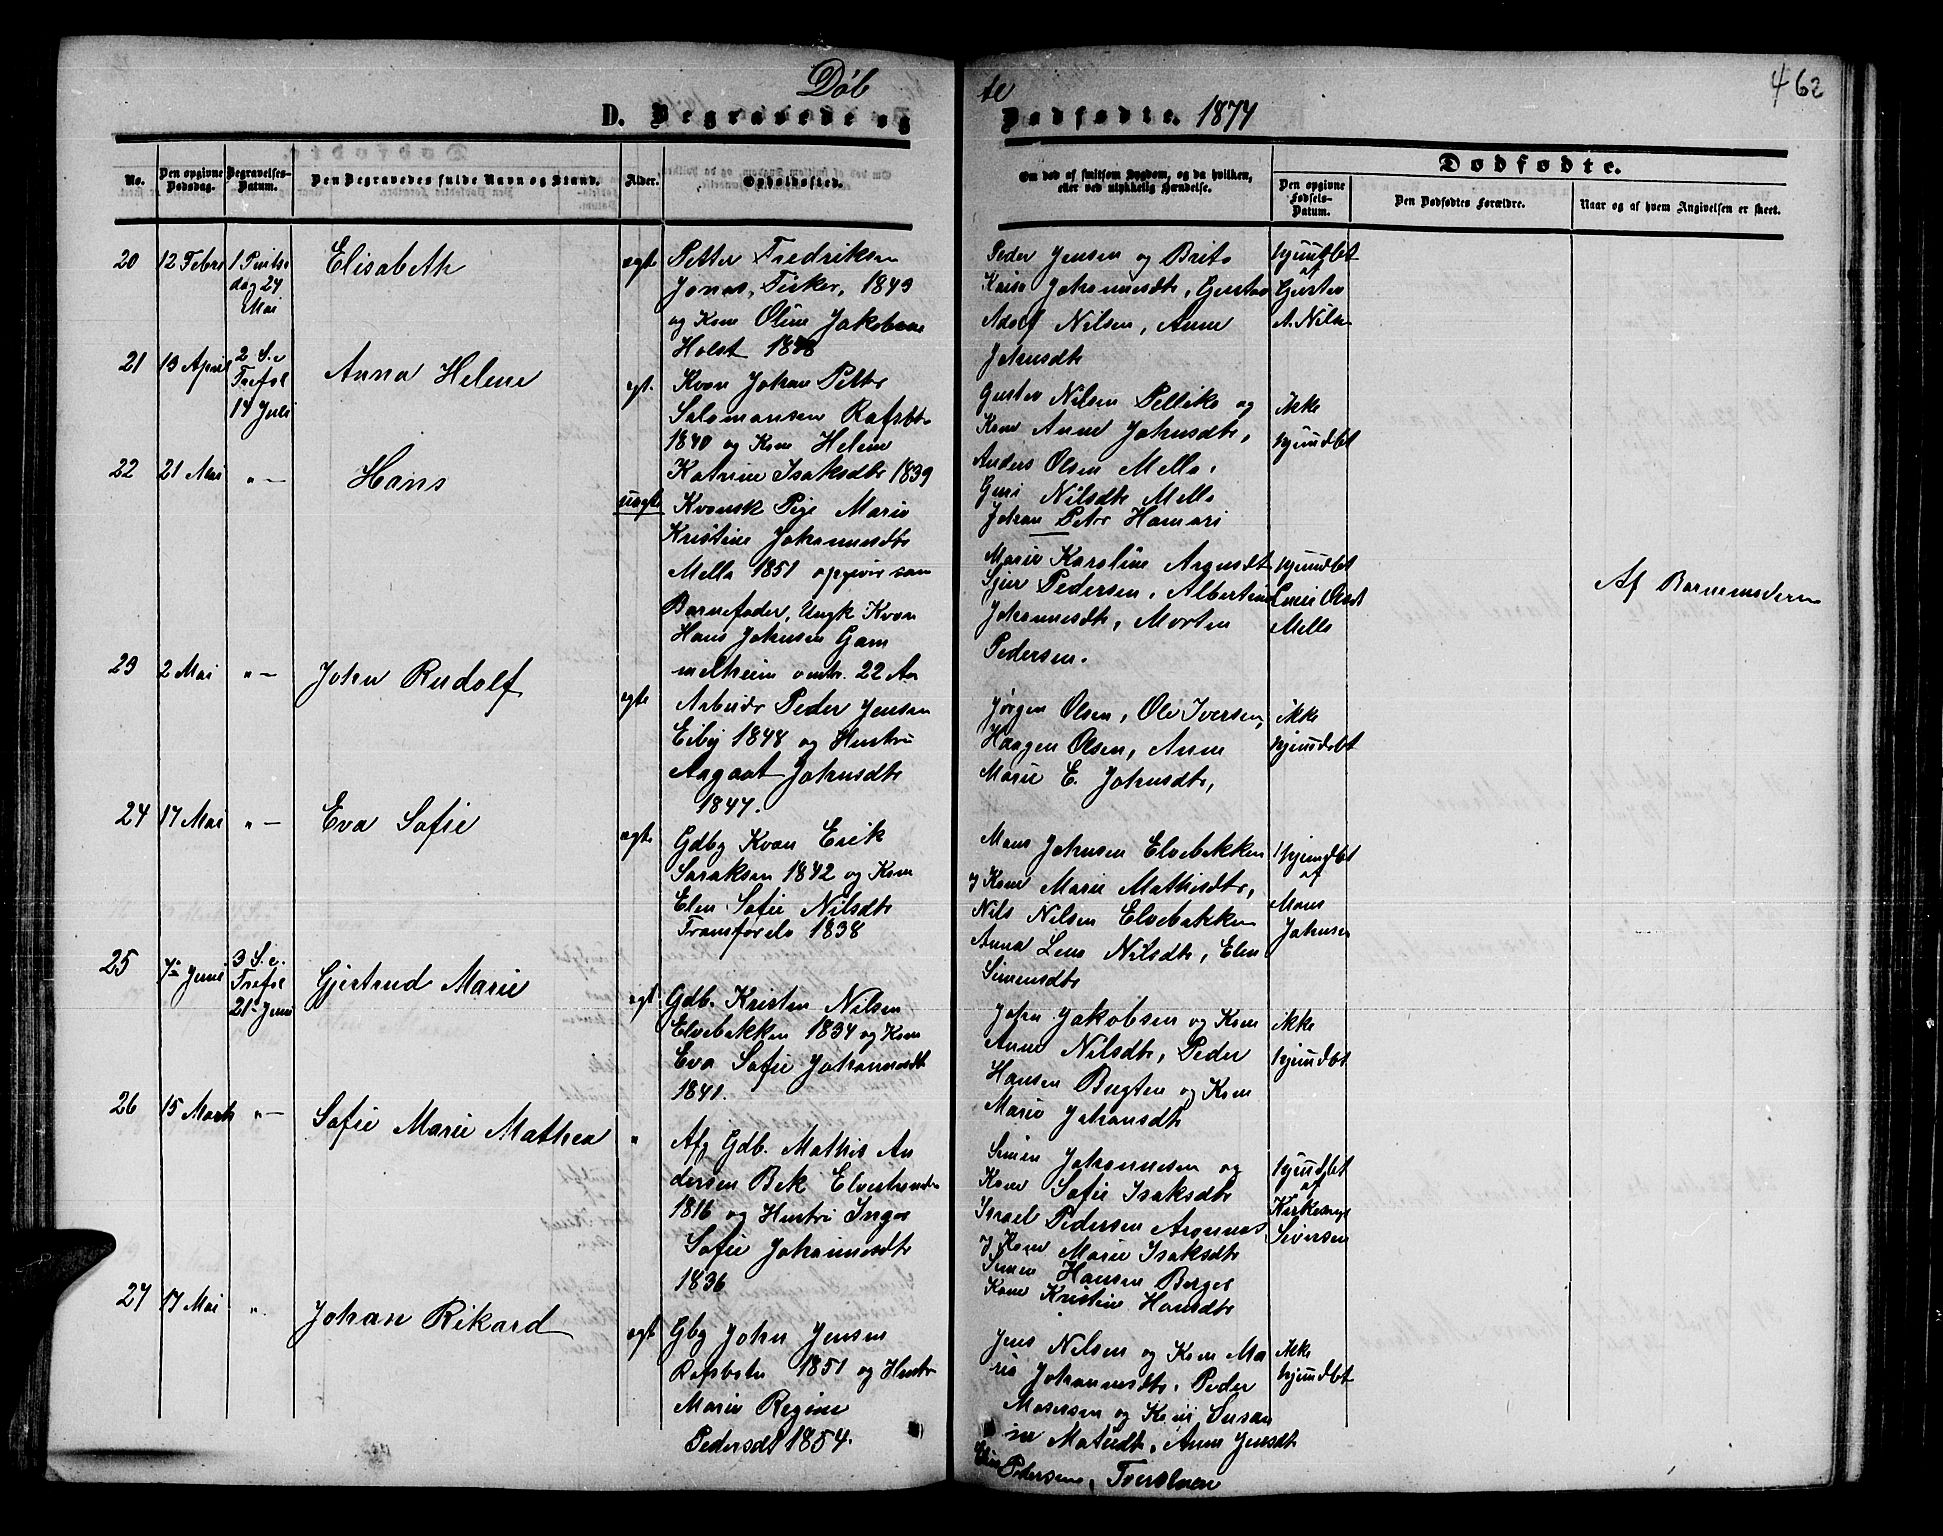 Døb
te
462
D. Begravede og
Dødfødte. 1874
No.
Den opgivne Dødsdag.
Begravelses-Datum.
Den Begravedes fulde Navn og Stand.
Alder.
Opholdssted.
Om død af smitsom Sygdom, og da hvilken,
eller ved ulykkelig Hændelse.
Dødfødte.
Den opgivne Fødsels-Datum.
Den Dødfødtes Forældre.
Naar og af hvem Angivelsen er skeet.
20 12 Febr 1 Pintse
dag 24
Mai
Elisabeth
ægt
Petter Fredriksen
Jonas, Fisker, 1849
og Kone Oline Jakobine
Holst
Peder Jensen og Brita
Kaisa Johannesdtr, Gustav
Adolf Nilsen, Anne
Johnsdtr
hjemdbt
af
Gustav
A. Nils
21 13 April 2 S. e
Trefol
14 Juli
Anna Helene
egt.
Kvæn Johan Petter
Salomonsen Rafsb.
1840 og Kone Helene
Katrine Isaksdtr 1839
Gustav Nilsen Pelliko og
Kone Anne Johnsdtr,
Anders Olsen Mella.
Guri Nilsdtr Mella
Johan Petter Hamari
ikke
hjemdbt
22 21 Mai " —
Hans
uegte
Kvænsk Pige Marie
Kristine Johannesdtr
Mella 1851 opgiver som
Barnefader, Ungk Kvæn
Hans Johnsen Gam
melheim omtr. 22 Aar
Marie Karoline Aronsdt
Sjur Pedersen, Albertine
Johannesdtr, Morten
Pedersen.
hjemdbt
Mella
Af Barnemoderen
23 2 Mai " —
John Rudolf
egte
Arbeider Peder Jensen
Eiby 1848 og Hustru
Aagaat Johnsdtr
1847.
Jørgen Olsen, Ole Iversen,
Haagen Olsen, Anne
Marie E. Johnsdtr,
ikke
hjemdøbt
24 17 Mai " —
Eva Sofie
ægt.
Gdbg Kvæn Erik
Saraksen 1842 og Kone
Elen Sofie Nilsdtr
Transfarelv 1838
Mons Johnsen Elvebakken
og Kone Marie Mathisdtr,
Nils Nilsen Elvebakken
Anna Lena Nilsdtr, Elen
Simensdtr
hjemdbt
af
Mons
Johnsen
25 7 Juni 3 S. e.
Trefol
21 Juni
Gjertrud Marie
egt
Gdb. Kristen Nilsen
Elvebakken 1834 og Kone
Eva Sofie Johannesdt
1841.
John Jakobsen og Kone
Anne Nilsdtr, Peder
Hansen Bugten og Kone
Marie Johansdtr
ikke
hjemdbt
26 15 Marts " —
Sofie Marie Mathea
"
Afg Gdb. Mathis An
dersen Bek Elvestranden
1816 og Hustru Inger
Sofie Johannesdtr
1836
Simen Johannesen og
Kone Sofie Isaksdtr
Israel Pedersen Aronnes
og Kone Marie Isaksdtr
Simen Hansen Berger
Kone Kristine Hansdtr
hjemdbt
af
Kirkesang
Siversen
27 17 Mai "
Johan Rikard
egt
Gbg John Jensen
Rafsbotn 1851 og Hustr
Marie Regine
Pedersdt 1854.
Jens Nilsen og Kone Ma
rie Johannesdtr, Peder
Mosesen og Kone Susan
ne Matisdtr, Anne Jensdtr
Pedersen, Tverelven
ikke
hjemdbt